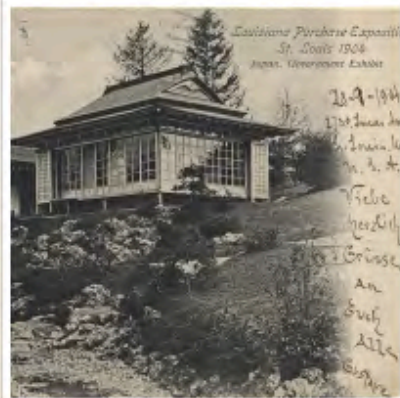 Louisiana Purchase Expositi
St. Louis 1904
Japan. Government Exhibit
28-9-1904
St. Louis
U. S. A.
Viele
herzlich
Grüsse
an
Euch
Alle
Gustave